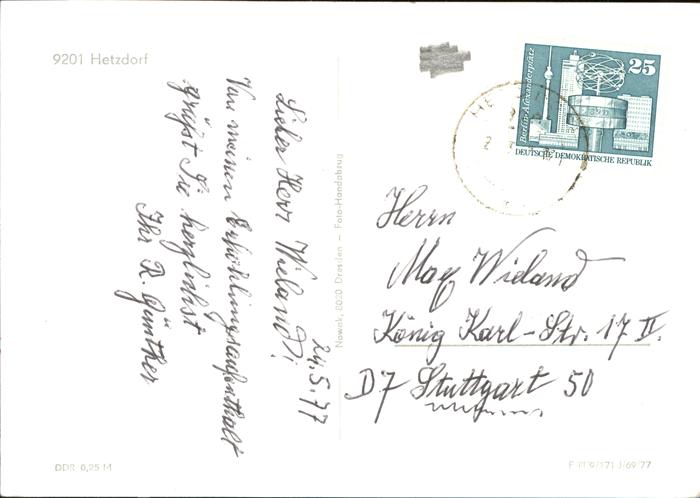 9201 Hetzdorf
24.5.77
Lieber Herr Wieland!
Von meinen Erhohlungsaufenthalt
grüßt Sie herzlichst
Ihr R. Günther
Nowak, 8020 Dresden – Foto-Handabzug
25
Berlin-Alexanderplatz
DEUTSCHE DEMOKRATISCHE REPUBLIK
Herrn
Max Wieland
König Karl-Str. 17 II.
D7 Stuttgart 50
DDR 0,25 M
F III/9/171 J/69/77